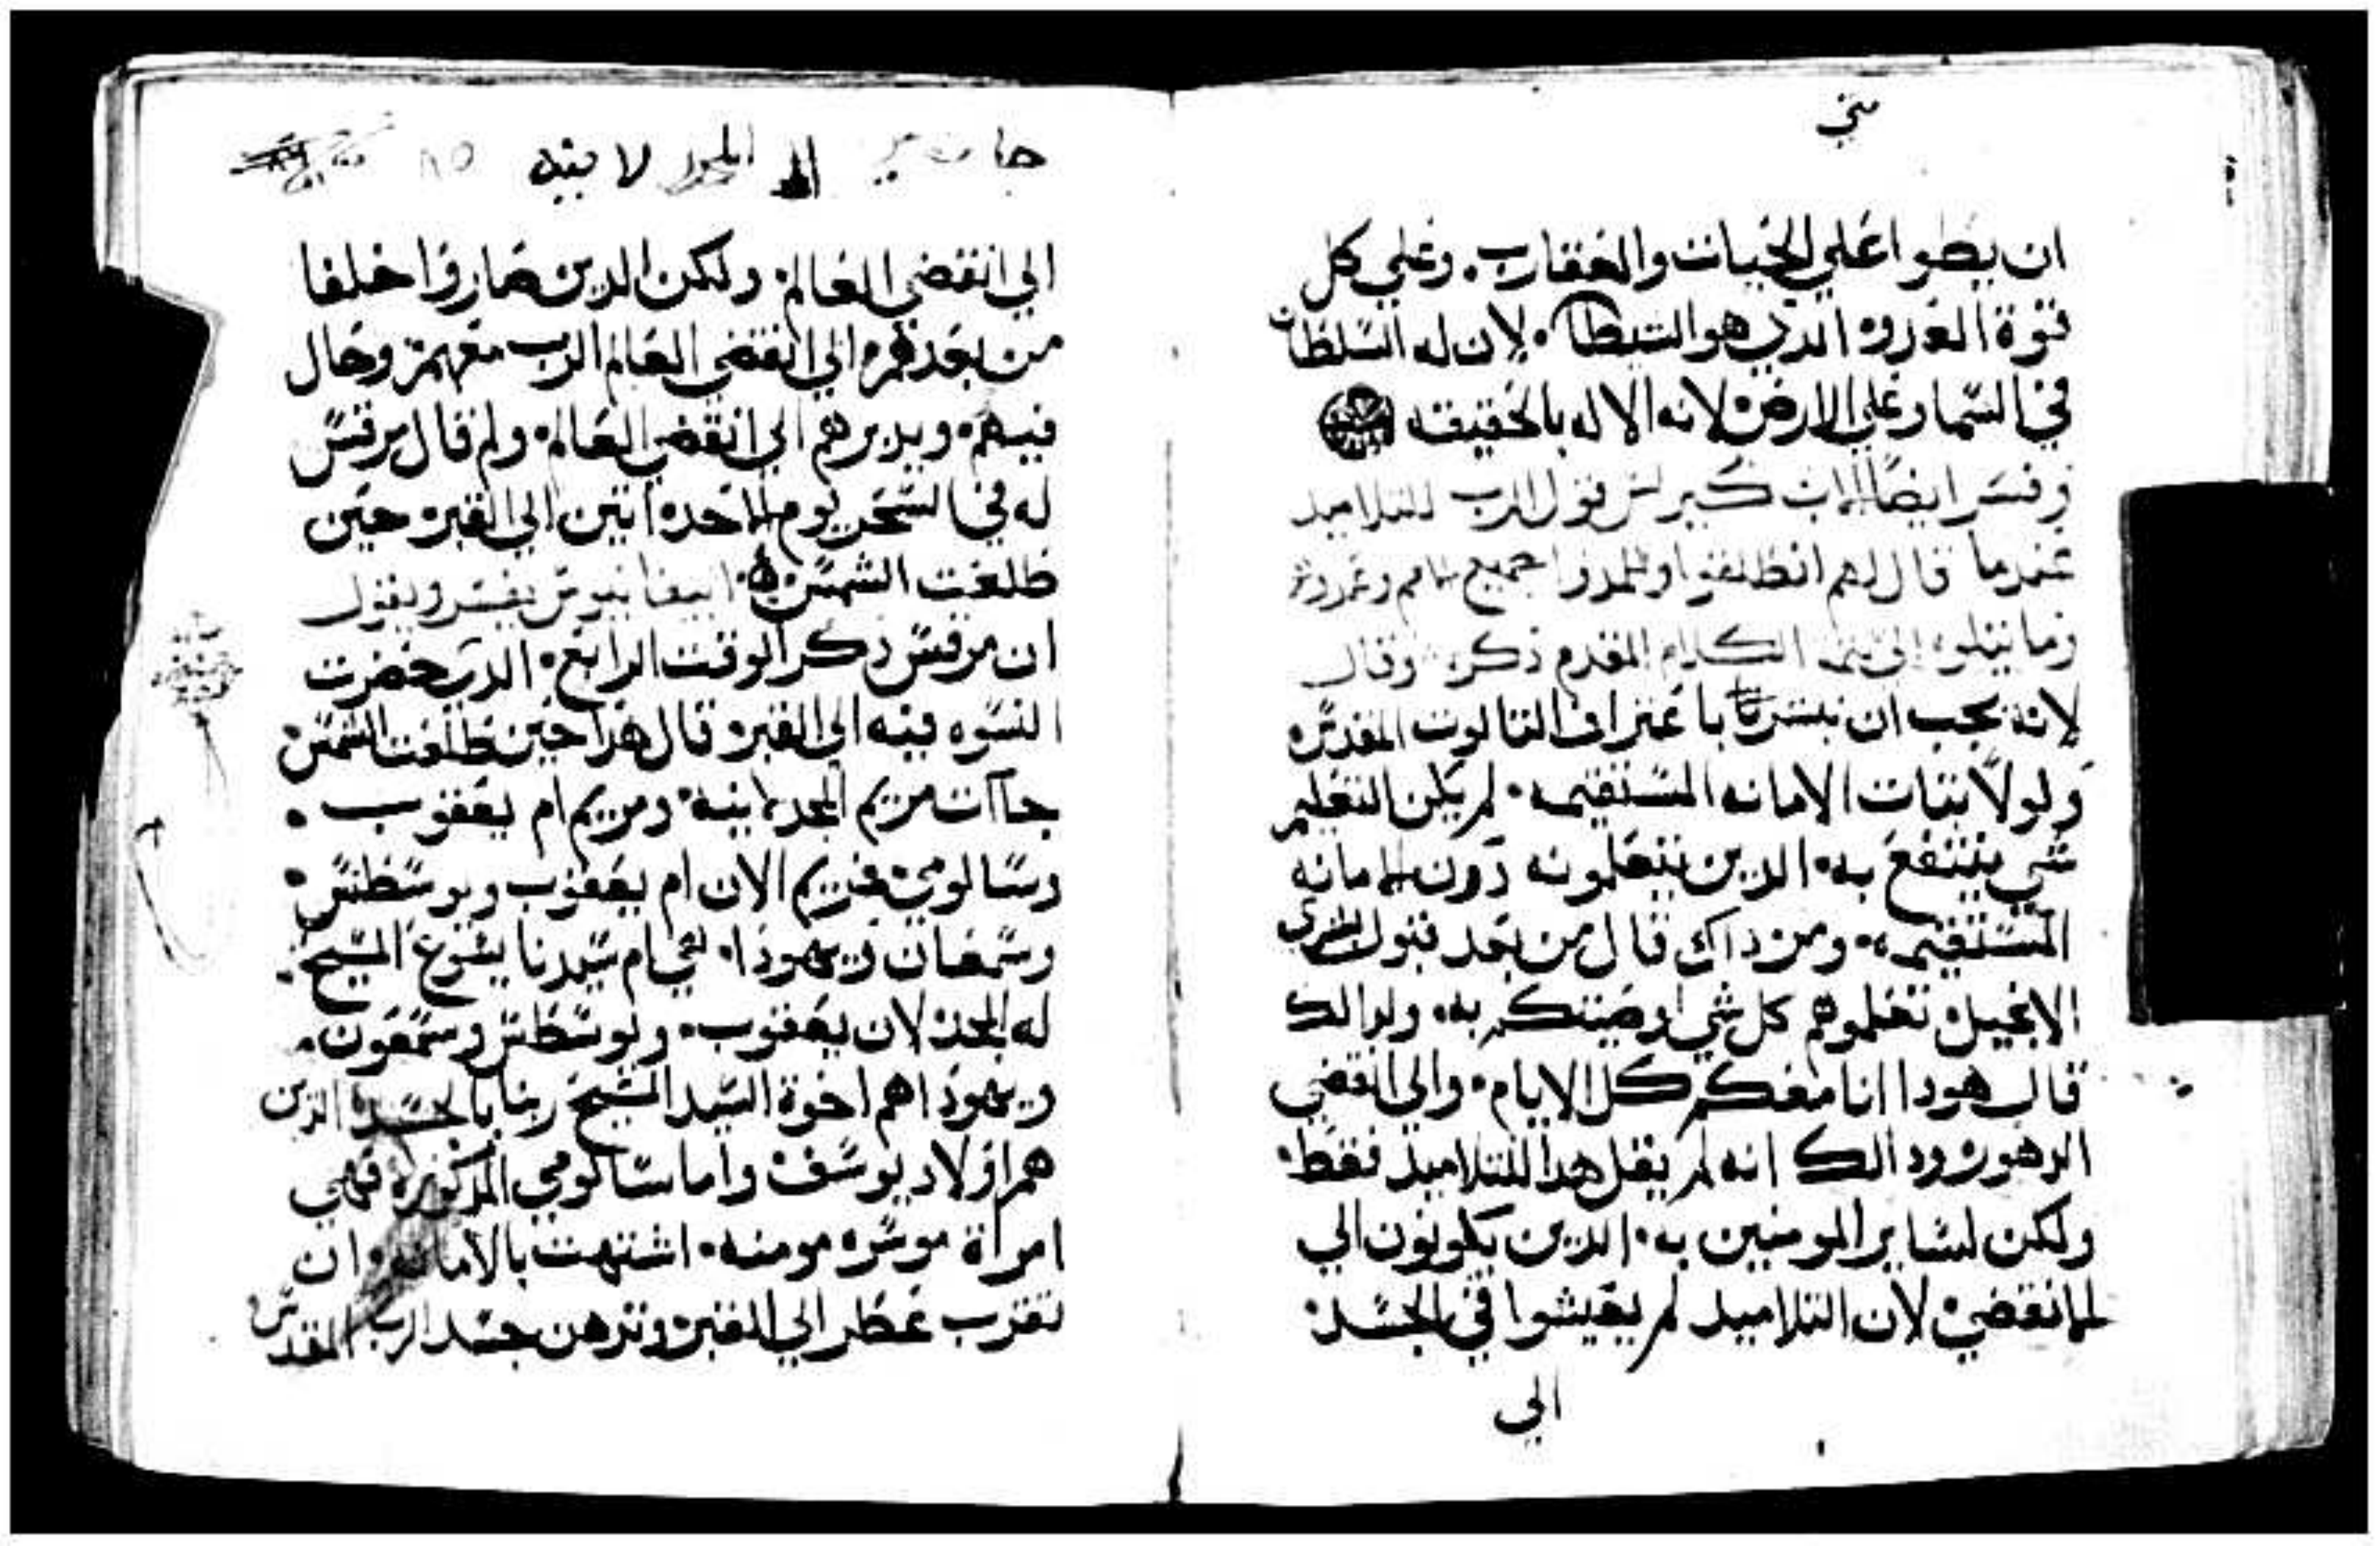 متي
ان يطوا علي الحيات والعقارب. وعلي كل
قوة العدو الدي هو الشيطان. لان له السلطان
في السما وعلي الارض لانه الاله بالحقيقه
وفسر ايضا كيرلس قول الرب للتلاميد
عندما قال لهم انطلقوا وتلمدوا جميع الامم وعمدوهم
وما يتلوه الي تتمة الكلام المقدم ذكره وقال
لانه يجب ان نبتدي باعتراف التالوت المقدس
ولولا تبات الامانه المستقيمه. لم يكن التعليم
شي ينتفع به. الدين يتعلمونه دون الامانه
المستقيمه. ومن داك قال من بعد قبول البشري
الانجيل تعلموهم كل شي اوصيتكم به. ولدالك
قال هودا انا معكم كل الايام. والي انقضي
الدهور ودالك انه لم يقل هدا للتلاميد فقط.
ولكن لساير المومنين به. الدين يكونون الي
الانقضي لان التلاميد لم يعيشوا في الجسد
الي
الي انقضي العالم ولكن الدين صاروا خلفا
من بعدهم الي انقضي العالم الرب معهم وحال
فيهم. ويدبرهم الي انقضي العالم. ولم قال مرقس
له في السحر يوم الاحد اتين الي القبر حين
طلعت الشمس. ابيفانيوس يفسر ويقول
ان مرقس ذكر الوقت الرابع. الدي حضرت
النسوه فيه الي القبر وقال هدا حين طلعت الشمس
جاات مريم المجدلانيه. ومريم ام يعقوب.
وسالومي فمريم الان ام يعقوب ويوسطس.
وسمعان ويهودا. هي ام سيدنا يسوع المسيح.
له المجد لان يعقوب. ويوسطس وسمعون.
ويهودا هم اخوة السيد المسيح ربنا بالجسد الدين
هم اولاد يوسف واما سالومي المدكوره فهي
امراة موسره مومنه. اشتهت بالامانه. ان
تقرب عطر الي القبر وتدهن جسد الرب المقدس